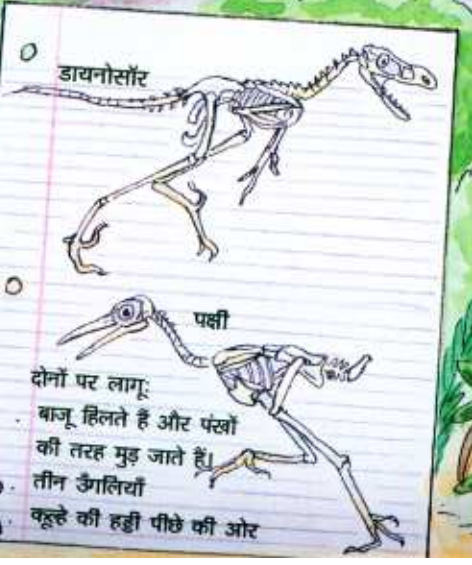 डायनोसॉर
पक्षी
दोनों पर लागू:
बाजू हिलते हैं और पंखों
की तरह मुड़ जाते हैं।
तीन उँगलियाँ
कूल्हे की हड्डी पीछे की ओर